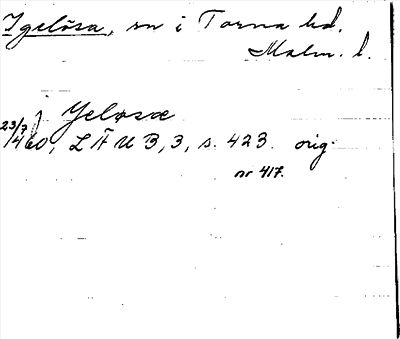 Igelösa, sn i Torna hd.
Malm. l.
j Yeløsæ
23/7 1460, LÄUB, 3, s. 423. orig.
nr 417.